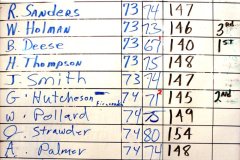 R. Sanders 73 74 147
W. Holman 73 73 146 3rd
B. Deese 73 67 140 1st
H. Thompson 73 75 148
J. Smith 73 74 147
G. Hutcheson 74 71 145 2nd
W. Pollard 74 75 149
Q. Strawder 74 80 154
A. Palmer 74 74 148